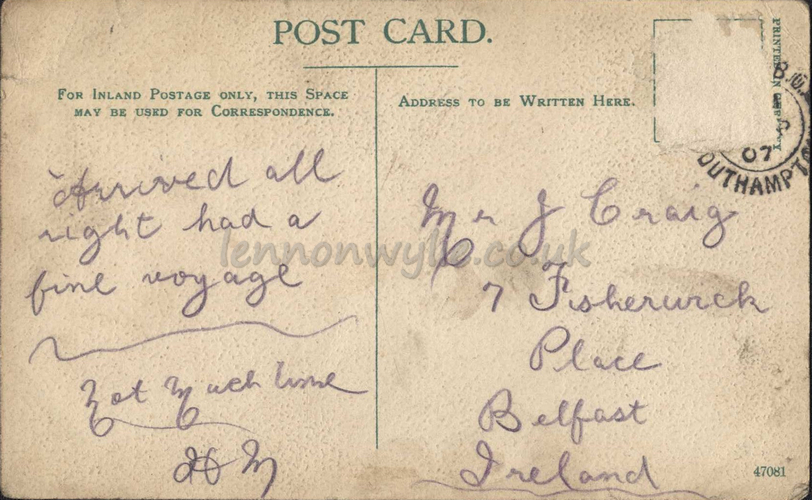 POST CARD.
FOR INLAND POSTAGE ONLY, THIS SPACE
MAY BE USED FOR CORRESPONDENCE.
ADDRESS TO BE WRITTEN HERE.
PRINTED IN
07
OUTHAMPTO
Arrived all
right had a
fine voyage
Not Much time
H M
Mr J Craig
7 Fisherwick
Place
Belfast
Ireland
47081
lennonwylie.co.uk